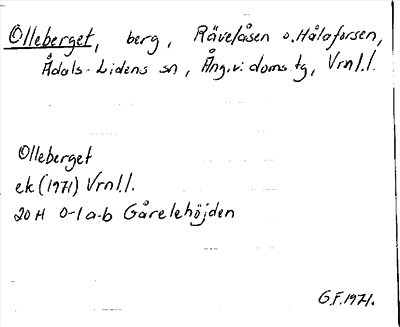 Olleberget, berg, Rävelåsen o. Hålaforsen,
Ådals-Lidens sn, Ång.v:i doms. tg, Vrnl.l.
Olleberget
ek (1971) Vrnl.l.
20H 0-1 a-b Gårelehöjden
G.F. 1971.